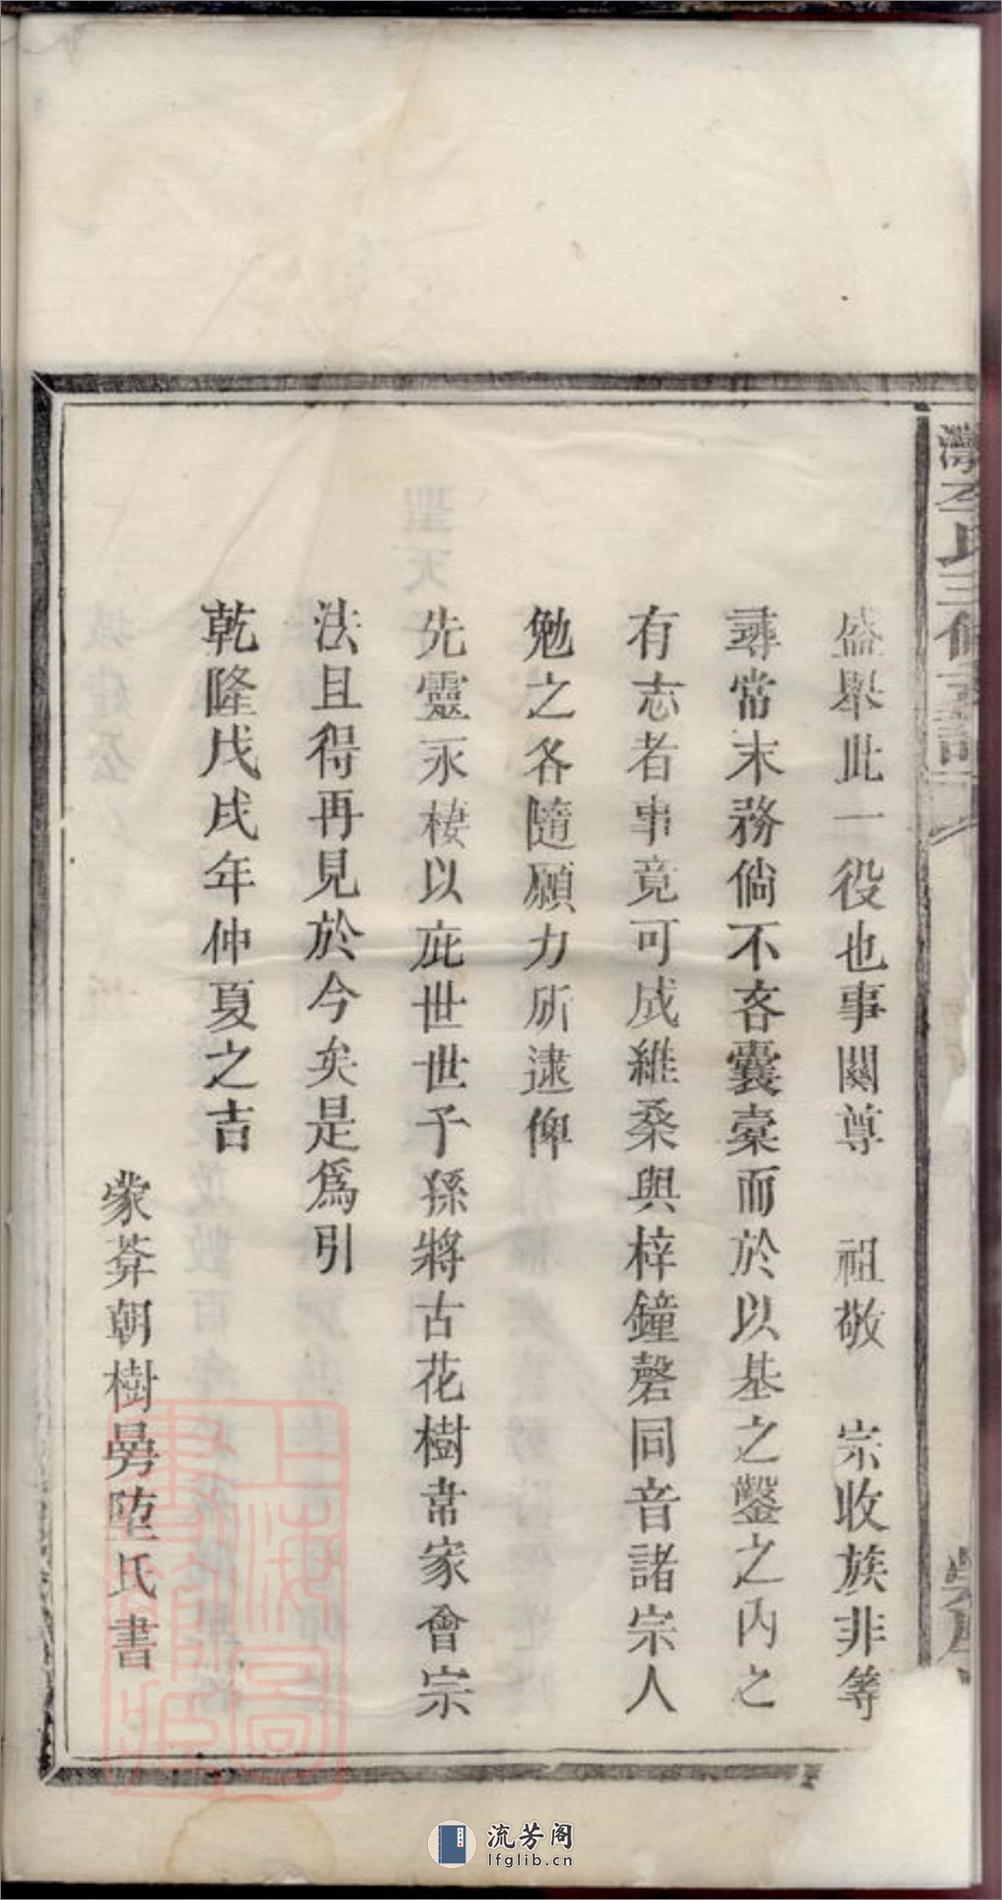 盛舉此一役也事關尊 祖敬 宗收族非等
尋常末務倘不吝囊橐而於以基之鑿之内之
有志者事竟可成維桑與梓鐘磬同音諸宗人
勉之各隨願力所逮俾
先靈永棲以庇世世子孫將古花樹常家會宗
法且得再見於今矣是爲引
乾隆戊戌年仲夏之吉
蒙莽朝樹昜堕氏書
上海圖書館藏
流芳阁
lfglib.cn